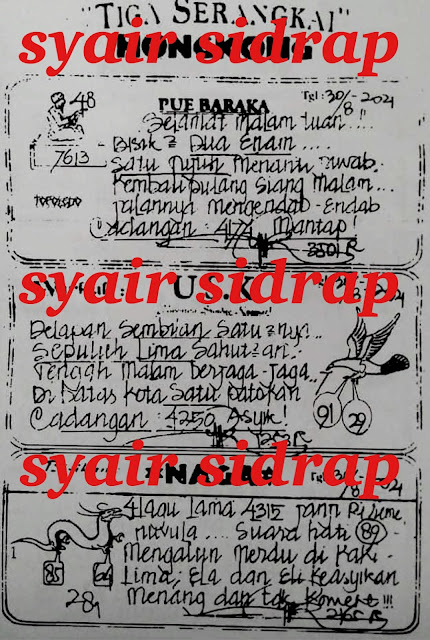 "TIGA SERANGKAI"
syair sidrap
HONGKONG
48
7613
PUE BARAKA
Tgl: 30/8 - 2021
Selamat Malam Tuan...!!
Bisik² Dua Enam ....
Satu Tujuh Menanti Jawab.
Kembali pulang siang Malam...
Jalannya mengendap-Endap
Cadangan : 4174 Mantap!
syair sidrap
U.S.K
Delapan Sembilan Satu²nya!..
Sepuluh Lima Sahut²an..
Tengah Malam Berjaga-jaga..
Di Batas Kota Satu patokan
Cadangan : 4250 Asyik!
91
29
syair sidrap
NAGA
4 lagu lama 4315
Suara hati 89
Mengalun Merdu di Kaki
Lima, Ela dan Eli Keasyikan
Menang dan tak Komens!!!
1
85
28